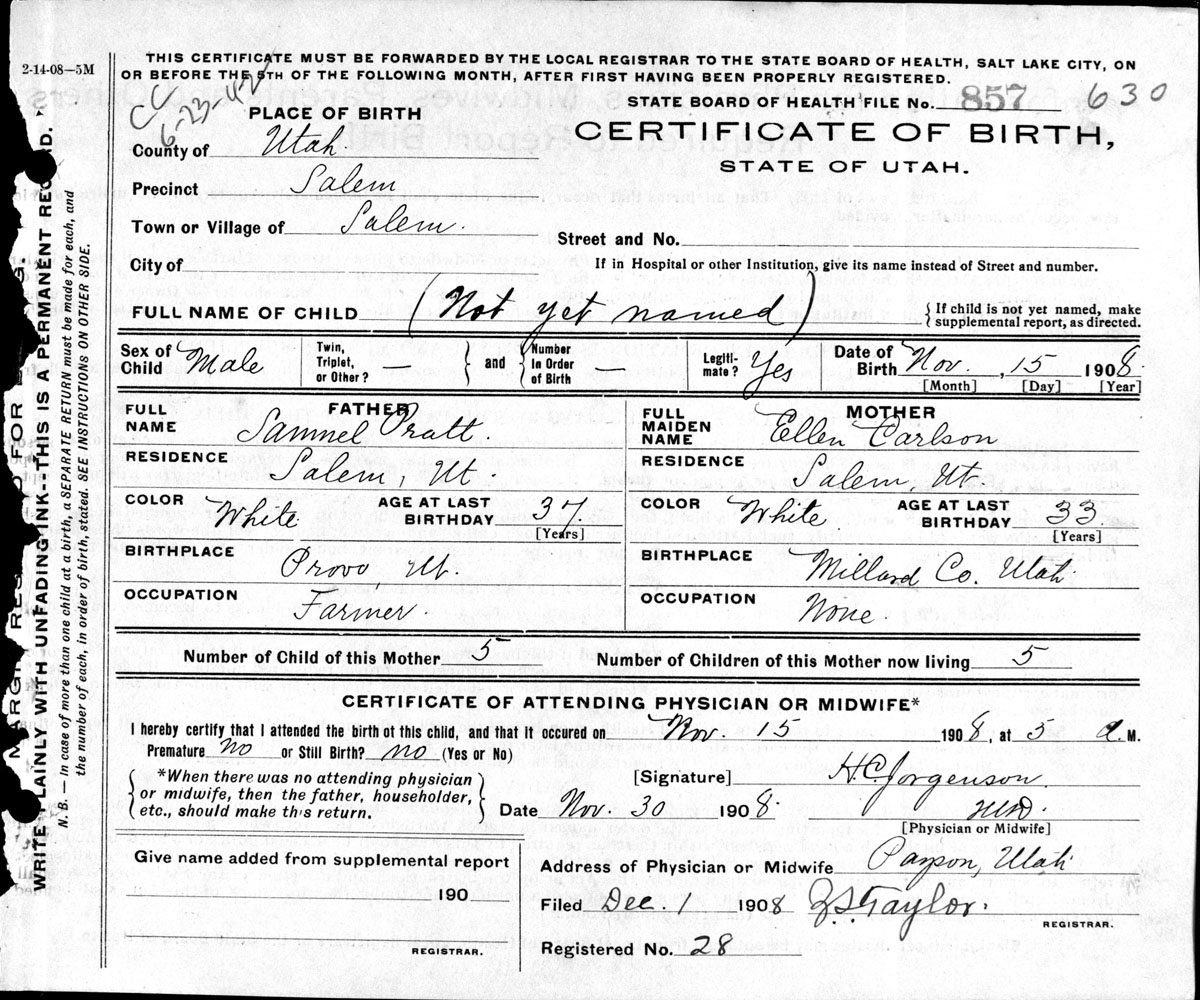 2-14-08—5M
THIS CERTIFICATE MUST BE FORWARDED BY THE LOCAL REGISTRAR TO THE STATE BOARD OF HEALTH, SALT LAKE CITY, ON
OR BEFORE THE 5TH OF THE FOLLOWING MONTH, AFTER FIRST HAVING BEEN PROPERLY REGISTERED.
CC
6-23-42
STATE BOARD OF HEALTH FILE No. 857 630
PLACE OF BIRTH
CERTIFICATE OF BIRTH,
STATE OF UTAH.
County of Utah
Precinct Salem
Town or Village of Salem.
Street and No.
City of
If in Hospital or other Institution, give its name instead of Street and number.
FULL NAME OF CHILD (Not yet named) { If child is not yet named, make
supplemental report, as directed.
Sex of Child Male
Twin, Triplet, or Other? — } and { Number In Order of Birth —
Legiti-mate? Yes
Date of Birth Nov. , 15 1908.
[Month] [Day] [Year]
FATHER
FULL NAME Samuel Pratt.
RESIDENCE Salem, Ut
COLOR White AGE AT LAST BIRTHDAY 37 [Years]
BIRTHPLACE Provo, Ut.
OCCUPATION Farmer.
MOTHER
FULL MAIDEN NAME Ellen Carlson
RESIDENCE Salem, Ut.
COLOR White AGE AT LAST BIRTHDAY 33. [Years]
BIRTHPLACE Millard Co. Utah
OCCUPATION None.
Number of Child of this Mother 5 Number of Children of this Mother now living 5
CERTIFICATE OF ATTENDING PHYSICIAN OR MIDWIFE*
I hereby certify that I attended the birth of this child, and that it occured on Nov. 15 1908, at 5 a.M.
Premature no or Still Birth? no (Yes or No)
{ *When there was no attending physician
or midwife, then the father, householder,
etc., should make this return. }
[Signature] H.C. Jorgenson
Date Nov. 30 1908. M.D.
[Physician or Midwife]
Give name added from supplemental report
190
REGISTRAR.
Address of Physician or Midwife Payson, Utah
Filed Dec. 1 1908 Taylor.
REGISTRAR.
Registered No. 28
WRITE PLAINLY WITH UNFADING INK—THIS IS A PERMANENT RECORD.
N. B. — In case of more than one child at a birth, a SEPARATE RETURN must be made for each, and
the number of each, in order of birth, stated. SEE INSTRUCTIONS ON OTHER SIDE.